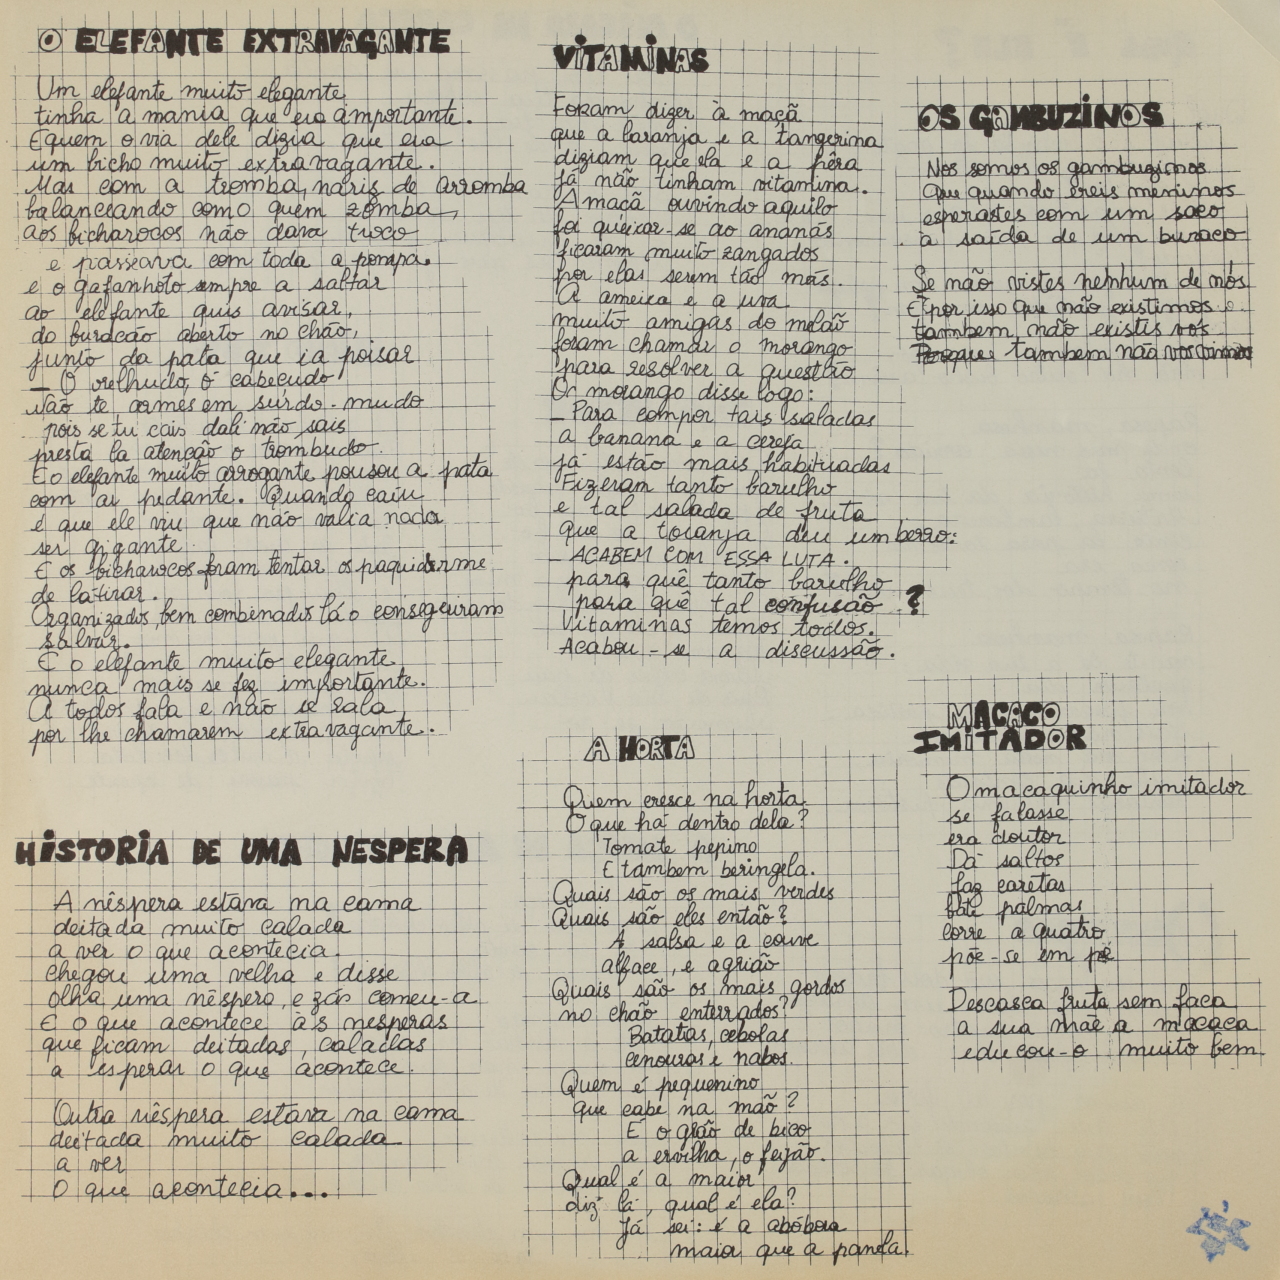 O ELEFANTE EXTRAVAGANTE
Um elefante muito elegante
tinha a mania que era importante.
E quem o via dele dizia que era
um bicho muito extravagante.
Mas com a tromba, naris de arromba
balanceando como quem zomba,
aos bicharocos não dava troco
e passeava com toda a pompa.
e o gafanhoto sempre a saltar
ao elefante quis avisar,
do buracão aberto no chão,
junto da pata que ia poisar
_ O orelhudo, ó cabeçudo
Não te armes em surdo-mudo
pois se tu cais dali não sais
presta lá atenção o trombudo.
E o elefante muito arrogante pousou a pata
com ar pedante. Quando caiu
é que ele viu que não valia nada
ser gigante
E os bicharocos foram tentar o paquiderme
de lá tirar.
Organizados, bem combinados lá o conseguiram
salvar.
E o elefante muito elegante
nunca mais se fez importante.
A todos fala e não se rala
por lhe chamarem extravagante.
HISTORIA DE UMA NESPERA
A nêspera estava na cama
deitada muito calada
a ver o que acontecia.
chegou uma velha e disse
olha uma nêspera, e zás comeu-a
E o que acontece às nesperas
que ficam deitadas, caladas
a esperar o que acontece.
Outra nêspera estava na cama
deitada muito calada
a ver
O que acontecia...
VITAMINAS
Foram dizer à maçã
que a laranja e a tangerina
diziam que ela e a pêra
já não tinham vitamina.
A maçã ouvindo aquilo
foi queixar-se ao ananás
ficaram muito zangados
por elas serem tão más.
A ameixa e a uva
muito amigas do melão
foram chamar o morango
para resolver a questão
O morango disse logo:
_ Para compor tais saladas
a banana e a cereja
já estão mais habituadas
Fizeram tanto barulho
e tal salada de fruta
que a toranja deu um berro:
_ ACABEM COM ESSA LUTA.
para quê tanto barulho
para quê tal confusão ?
Vitaminas temos todos.
Acabou-se a discussão.
A HORTA
Quem cresce na horta
O que há dentro dela?
Tomate pepino
E tambem beringela.
Quais são os mais verdes
Quais são eles então?
A salsa e a couve
alface, e agrião
Quais são os mais gordos
no chão enterrados?
Batatas, cebolas
cenouras e nabos.
Quem é pequenino
que cabe na mão?
E o grão de bico
a ervilha, o feijão.
Qual é a maior
diz lá, qual é ela?
Já sei: é a abóbora
maior que a panela.
OS GAMBUZINOS
Nos somos os gambuzinos
que quando ereis meninos
esperastes com um saco
à saída de um buraco
Se não vistes nenhum de nós
É por isso que não existimos e
tambem não existis vós
Porque tambem não vos vimos
MACACO
IMITADOR
O macaquinho imitador
se falasse
era doutor
Dá saltos
faz caretas
bate palmas
corre a quatro
põe-se em pé
Descasca fruta sem faca
a sua mãe a macaca
educou-o muito bem